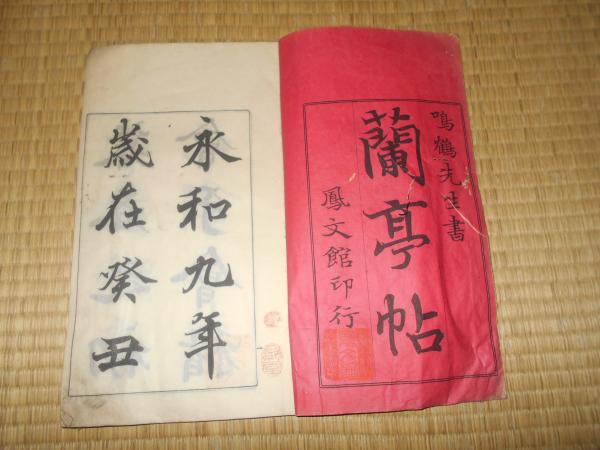 鳴鶴先生書
蘭亭帖
鳳文館印行
永和九年
歳在癸丑